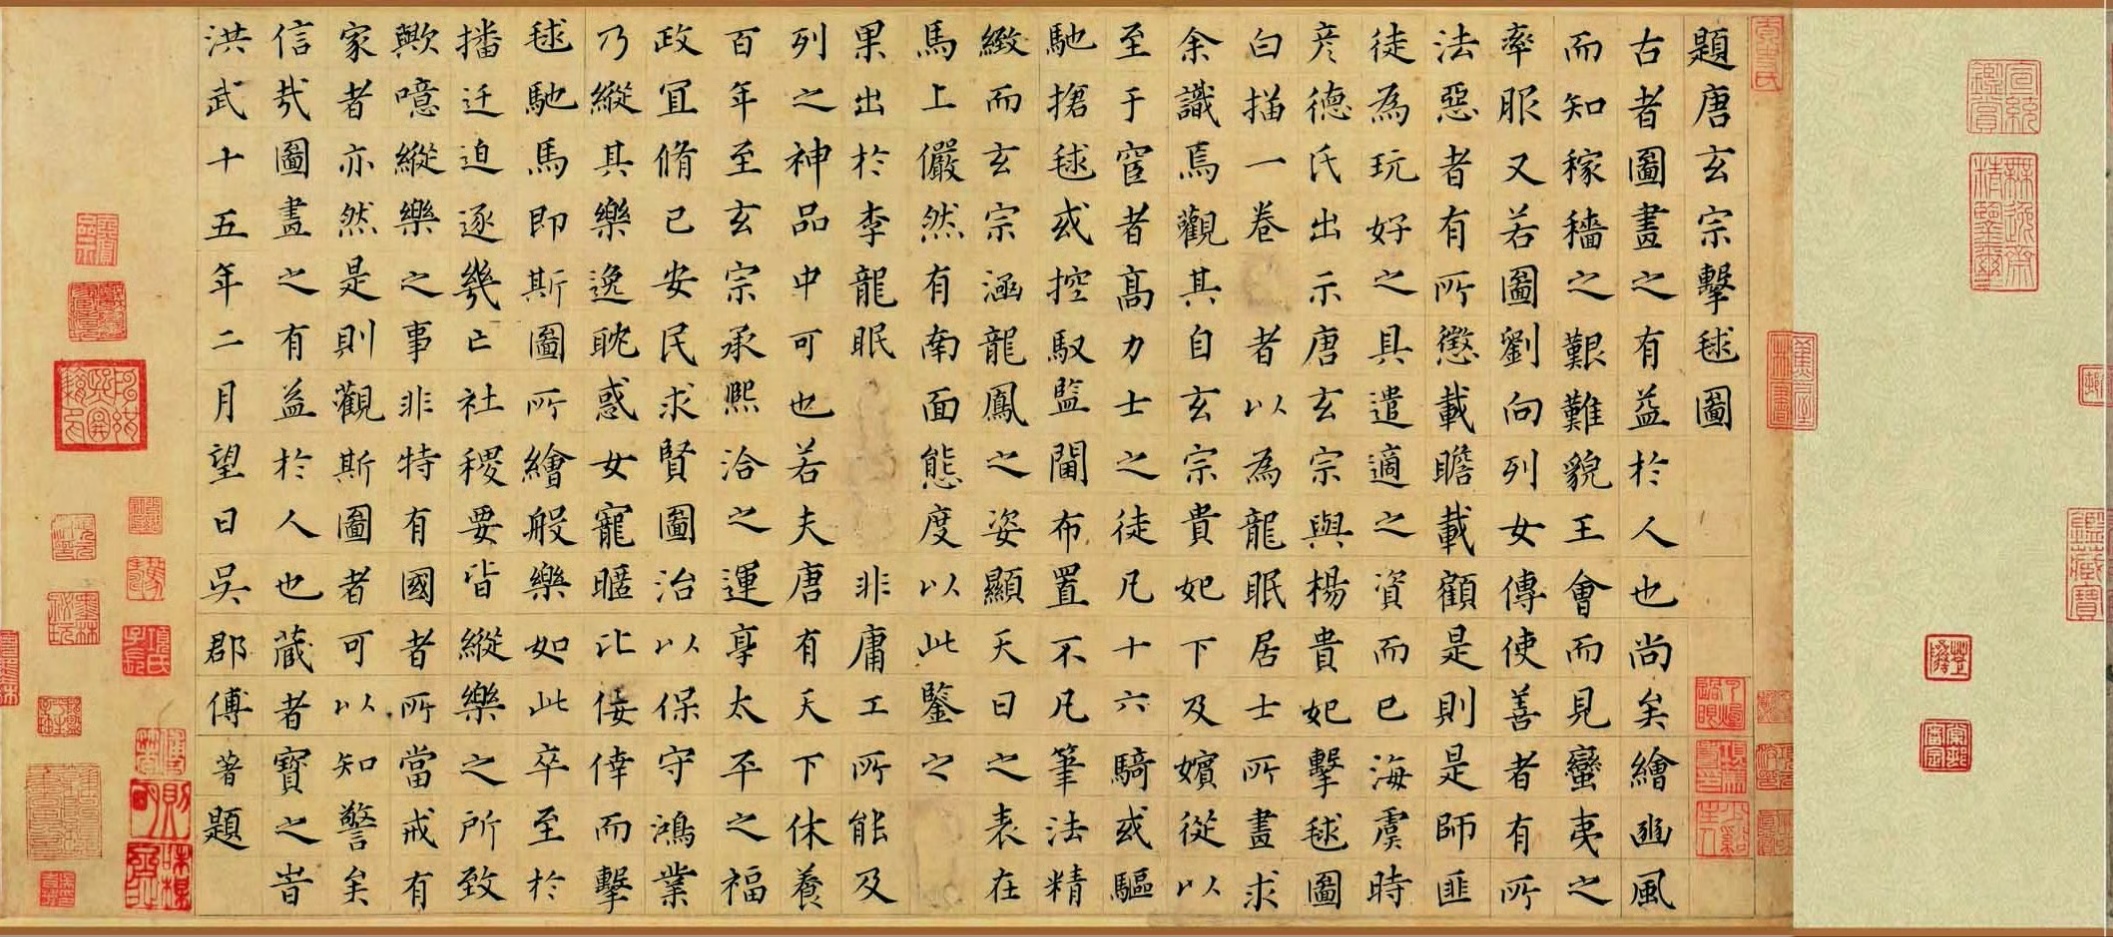 題唐玄宗擊毬圖
古者圖畫之有益於人也尚矣繪豳風
而知稼穡之艱難貌王會而見蠻夷之
率服又若圖劉向列女傳使善者有所
法惡者有所懲載瞻載顧是則是師匪
徒為玩好之具遣適之資而已海虞時
彥德氏出示唐玄宗與楊貴妃擊毬圖
白描一卷者以為龍眠居士所畫求
余識焉觀其自玄宗貴妃下及嬪從以
至于宦者高力士之徒凡十六騎或驅
馳搶毬或控馭監閫布置不凡筆法精
緻而玄宗涵龍鳳之姿顯天日之表在
馬上儼然有南面態度以此鑒之
果出於李龍眠非庸工所能及
列之神品中可也若夫唐有天下休養
百年至玄宗承熙洽之運享太平之福
政宜脩己安民求賢圖治以保守鴻業
乃縱其樂逸耽惑女寵暱比倿倖而擊
毬馳馬即斯圖所繪般樂如此卒至於
播迁迫逐幾亡社稷要皆縱樂之所致
歟噫縱樂之事非特有國者所當戒有
家者亦然是則觀斯圖者可以知警矣
信哉圖畫之有益於人也蔵者寶之旹
洪武十五年二月望日吳郡傅著題
宣統鑒賞
無逸齋精鑒璽